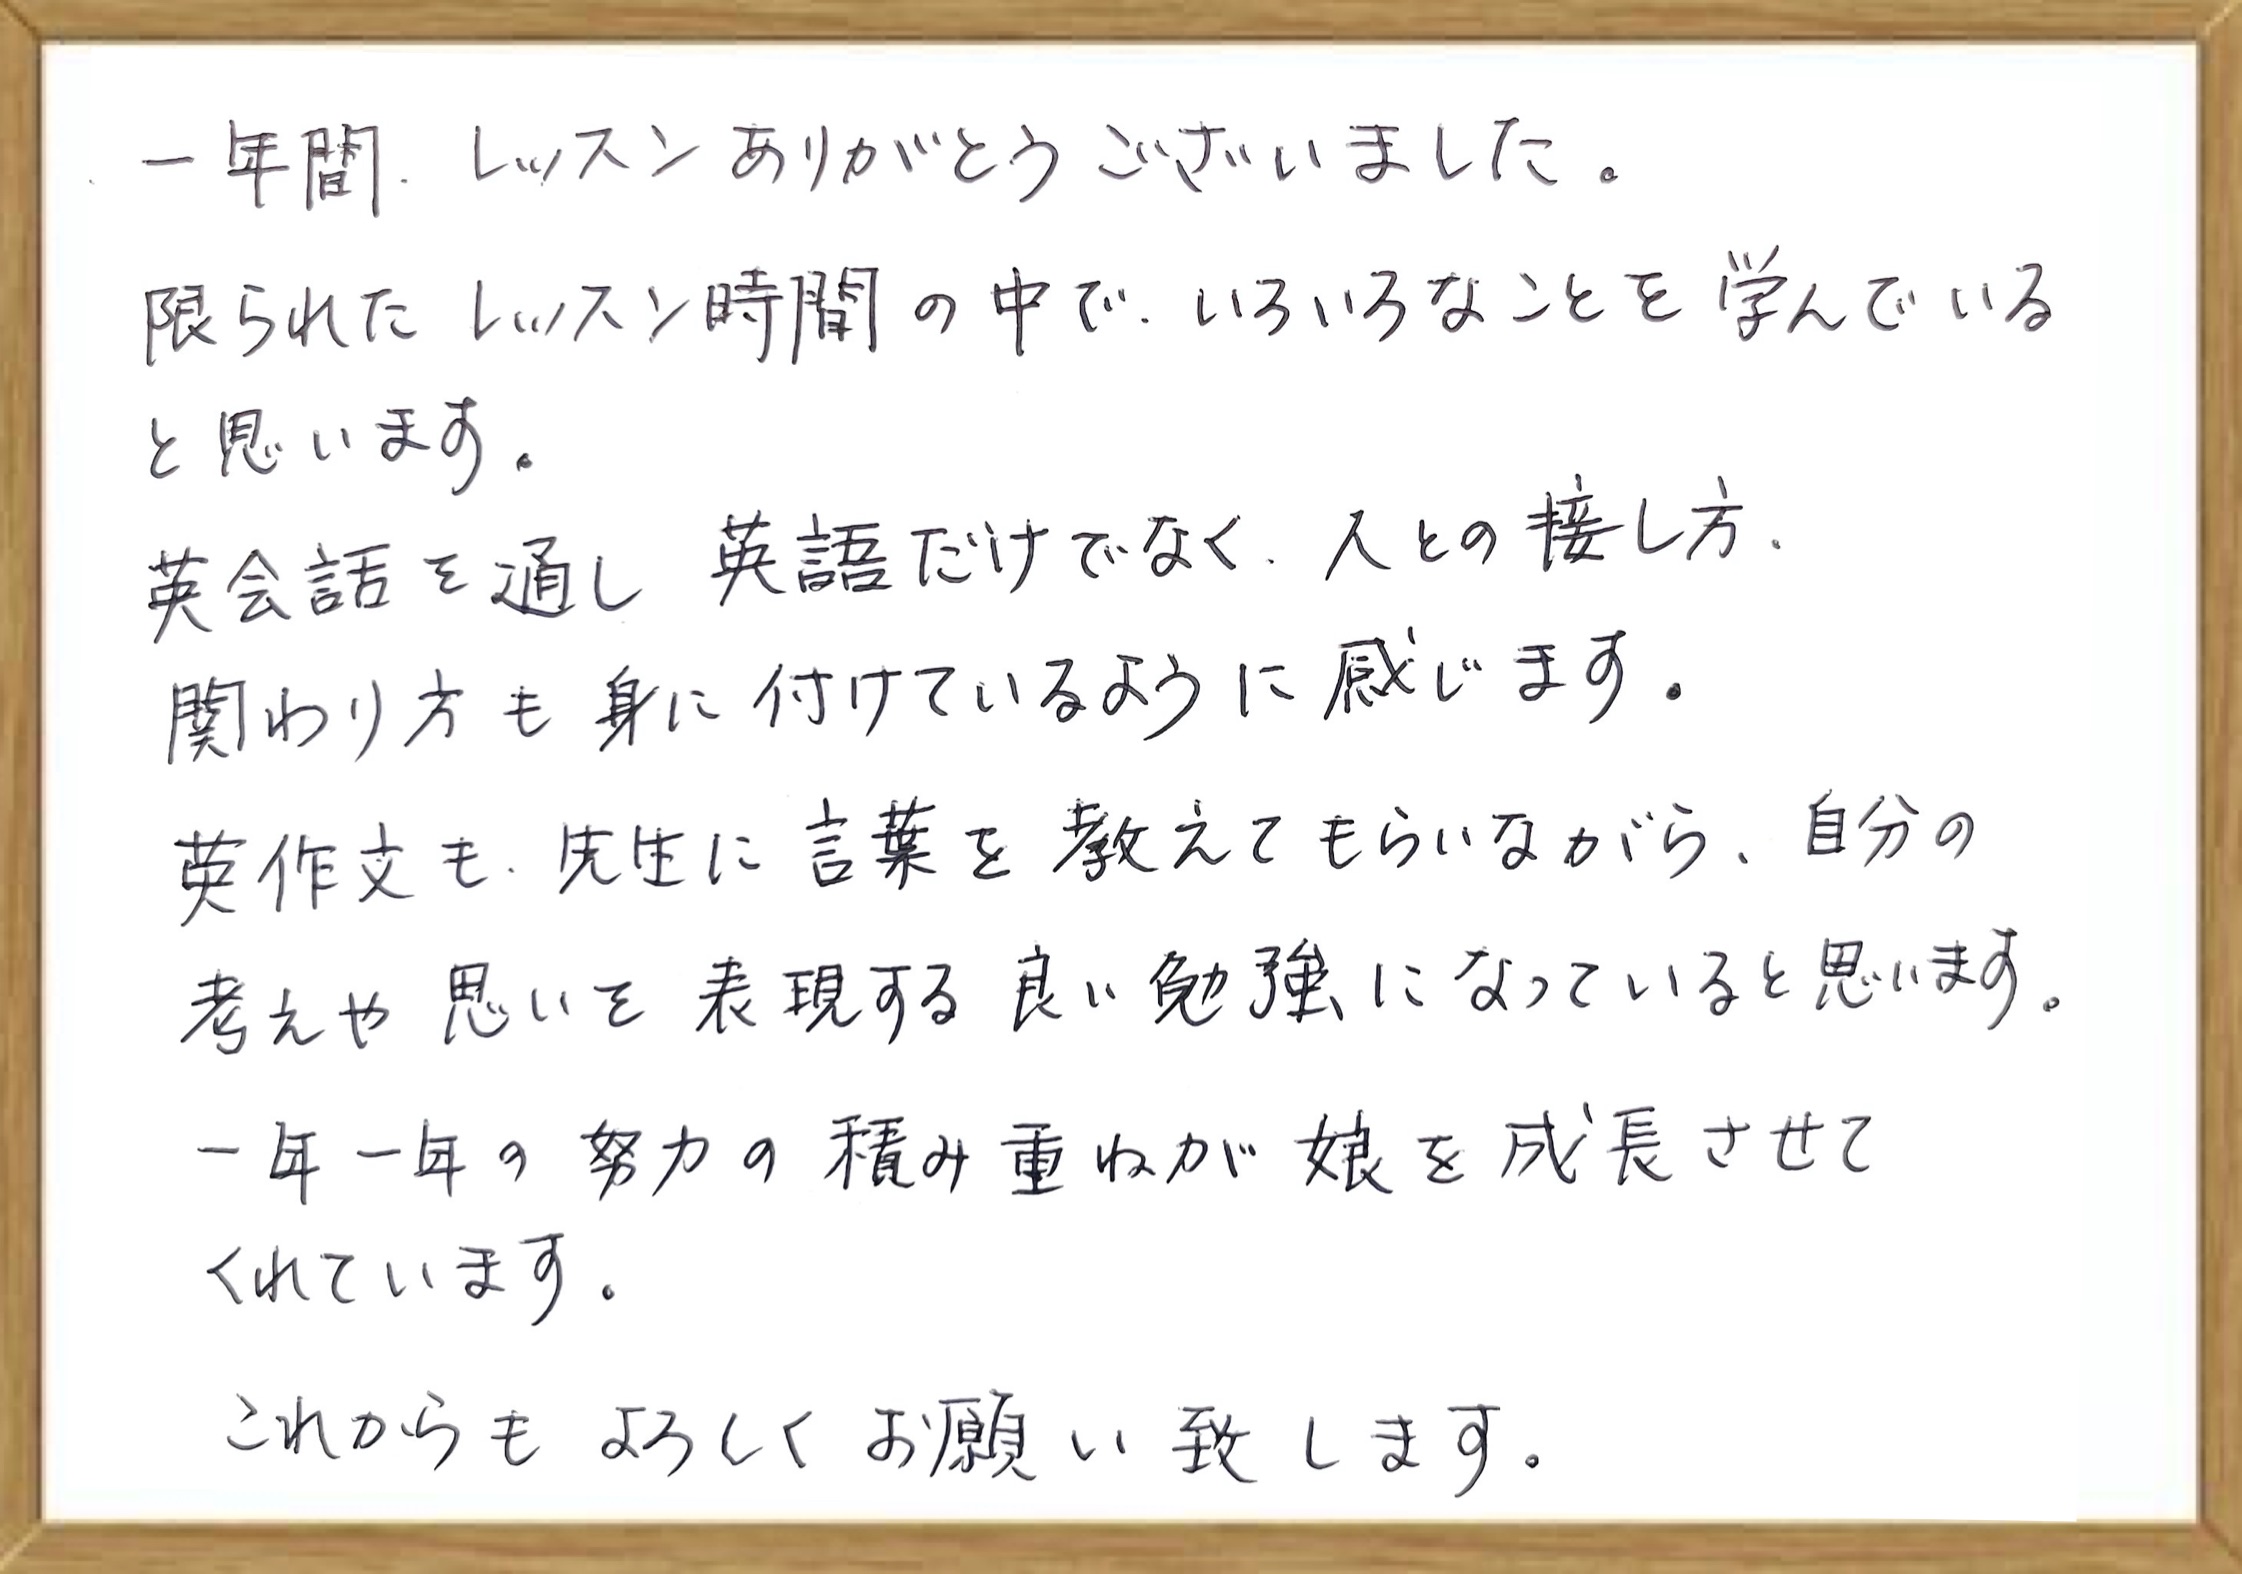 一年間、レッスンありがとうございました。
限られたレッスン時間の中で、いろいろなことを学んでいる
と思います。
英会話を通し 英語だけでなく、人との接し方、
関わり方も身に付けているように感じます。
英作文も、先生に言葉を教えてもらいながら、自分の
考えや思いを表現する良い勉強になっていると思います。
一年一年の努力の積み重ねが娘を成長させて
くれています。
これからもよろしくお願い致します。